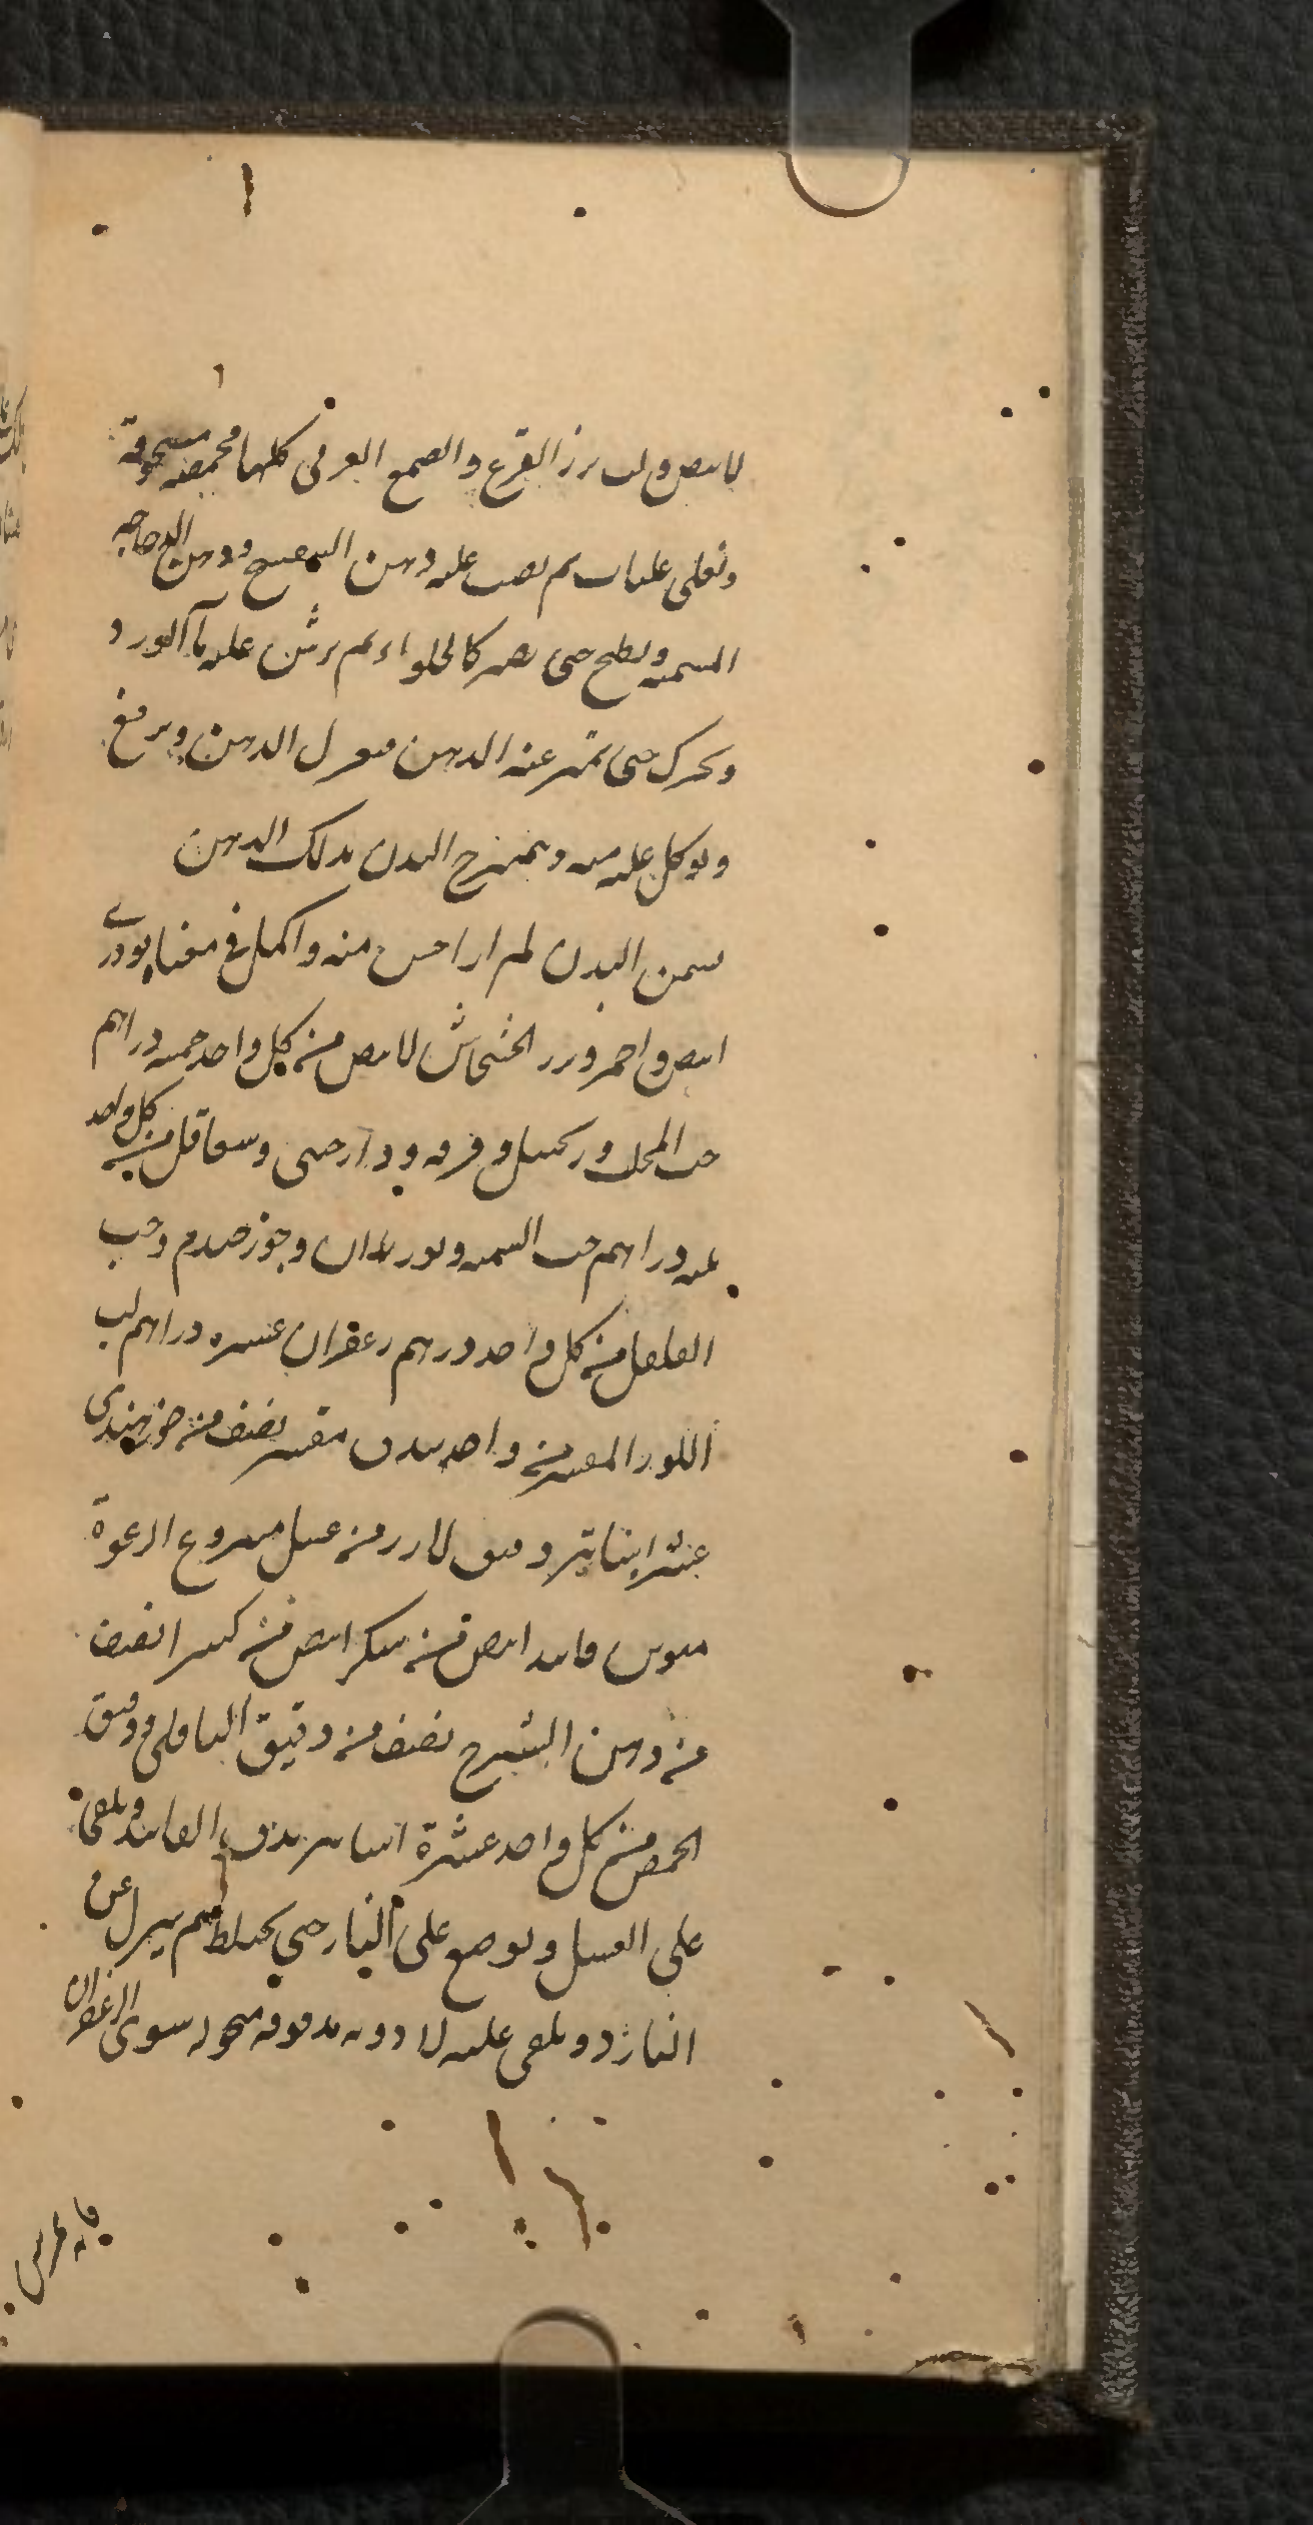 الابيض ولب بزر القرع والصمغ العربى كلها محمصه مسحوقة
وتغلى غليات ثم يصب عليه دهن البنفسج ودهن الدجاجه
المسمنه ويطبخ حتى يصير كالحلواء ثم يرش عليه مآ الورد و
ويحرك حتى يتميز عنه الدهن فيعزل الدهن ويرفع
ويوكل عليه منه ويمرخ البدن بذلك الدهن
يسمن البدن لم ار احسن منه واكمل فى معناه بودرى
ابيض واحمر وبزر الخشخاش الابيض من كل واحد خمسه دراهم
حب المحلب وزنجبيل وقرفه ودارصينى وسفاقل من كل واحد
ثلثه دراهم حب السمنه وبوزيدان وجوز جندم وحب
الفلفل من كل واحد درهم زعفران عشره دراهم لب
اللوز المقشر من واحد بندق مقشر نصف من جوز هندى
عشر اساتير دقيق الارز من عسل منزوع الرغوة
منوين فانيد ابيض من سكر ابيض من كثيرا نصف
من دهن الشيرج نصف من دقيق الباقلى ودقيق
الحمص من كل واحد عشرة اساتير يدق الفانيد ويلقى
على العسل ويوضع على النار حتى يختلط ثم ينزل عن
النار ويلقى عليه الادويه مدقوقه منخوله سوى الزعفران